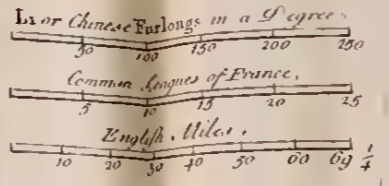 Li or Chinese Furlongs in a Degree.
50 100 150 200 250
Common Leagues of France.
5 10 15 20 25
English Miles.
10 20 30 40 50 60 69 1/4